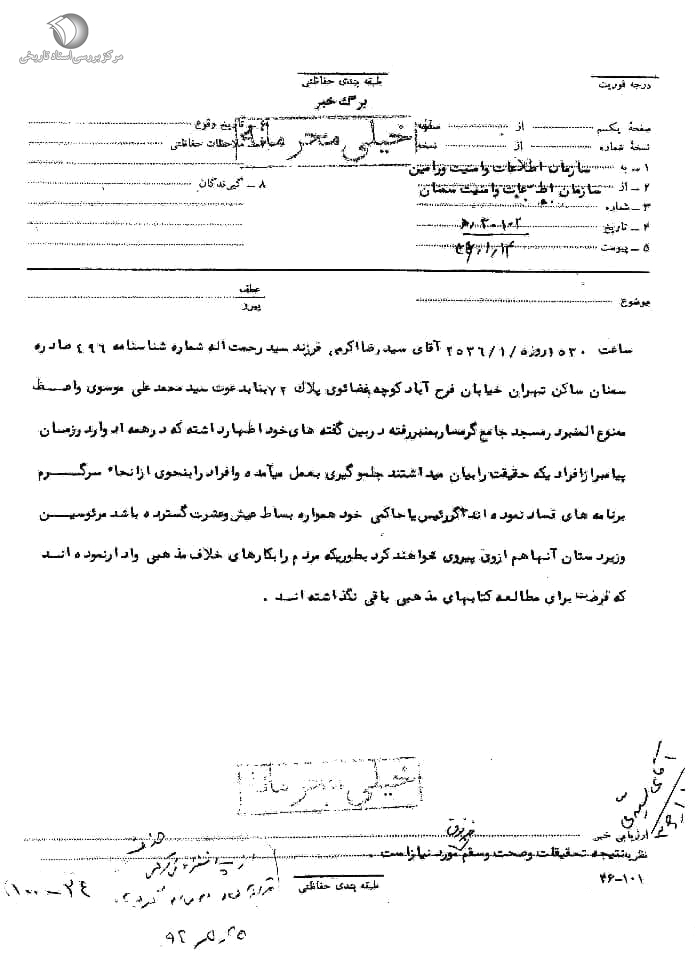 مرکز بررسی اسناد تاریخی
طبقه بندی حفاظتی
درجه فوریت
برگ خبر
خیلی محرمانه
صفحهٔ یکم از صفحه
نسخهٔ شماره از نسخه
تاریخ وقوع
ملاحظات حفاظتی
۱ ـ به سازمان اطلاعات وامنیت ورامین
۲ ـ از سازمان اطلاعات وامنیت سمنان
۸ ـ گیرندگان
۳ ـ شماره
۴ ـ تاریخ
۵ ـ پیوست
موضوع
عطف
پیرو
ساعت ۱۵۳۰ روزه /۱/ ۲۵۳۶ آقای سید رضا اکرمی فرزند سید رحمت اله شماره شناسنامه ۴۹۶ صادره
سمنان ساکن تهران خیابان فرح آباد کوچه پلاك ۷۲ بنا بدعوت سید محمد علی موسوی واعظ
ممنوع المنبر در مسجد جامع گرمسار بمنبر رفته در بین گفته های خود اظهار داشته که در همه ادوار و زمان
پیامبر از افراد یکه حقیقت را بیان میداشتند جلوگیری بعمل میآمده و افراد را بنحوی از انحاء سرگرم
برنامه های فساد نموده اند اگر رئیس یا حاکمی خود همواره بساط عیش وعشرت گسترده باشد مرئوسین
وزیردستان آنها هم از وی پیروی خواهند کرد بطوریکه مردم را بکارهای خلاف مذهبی وادار نموده اند
که فرصت برای مطالعه کتابهای مذهبی باقی نگذاشته اند .
خیلی محرمانه
ارزیابی خبر
نظریه نتیجه تحقیقات وصحت وسقم مورد نیاز است .
طبقه بندی حفاظتی
۳۶-۱۰۱